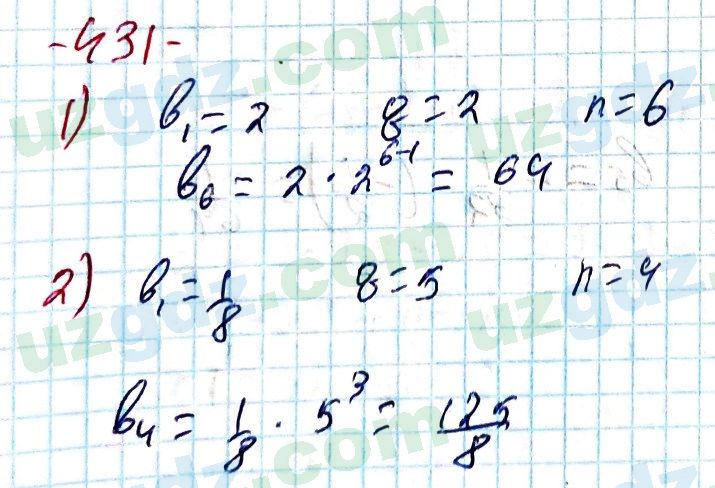 -431-
1) b₁ = 2 q = 2 n = 6
b₆ = 2 · 2⁶⁻¹ = 64
2) b₁ = 1/8 q = 5 n = 4
b₄ = 1/8 · 5³ = 125/8
uzgdz.com
uzgdz.com
uzgdz.com
uzgdz.com